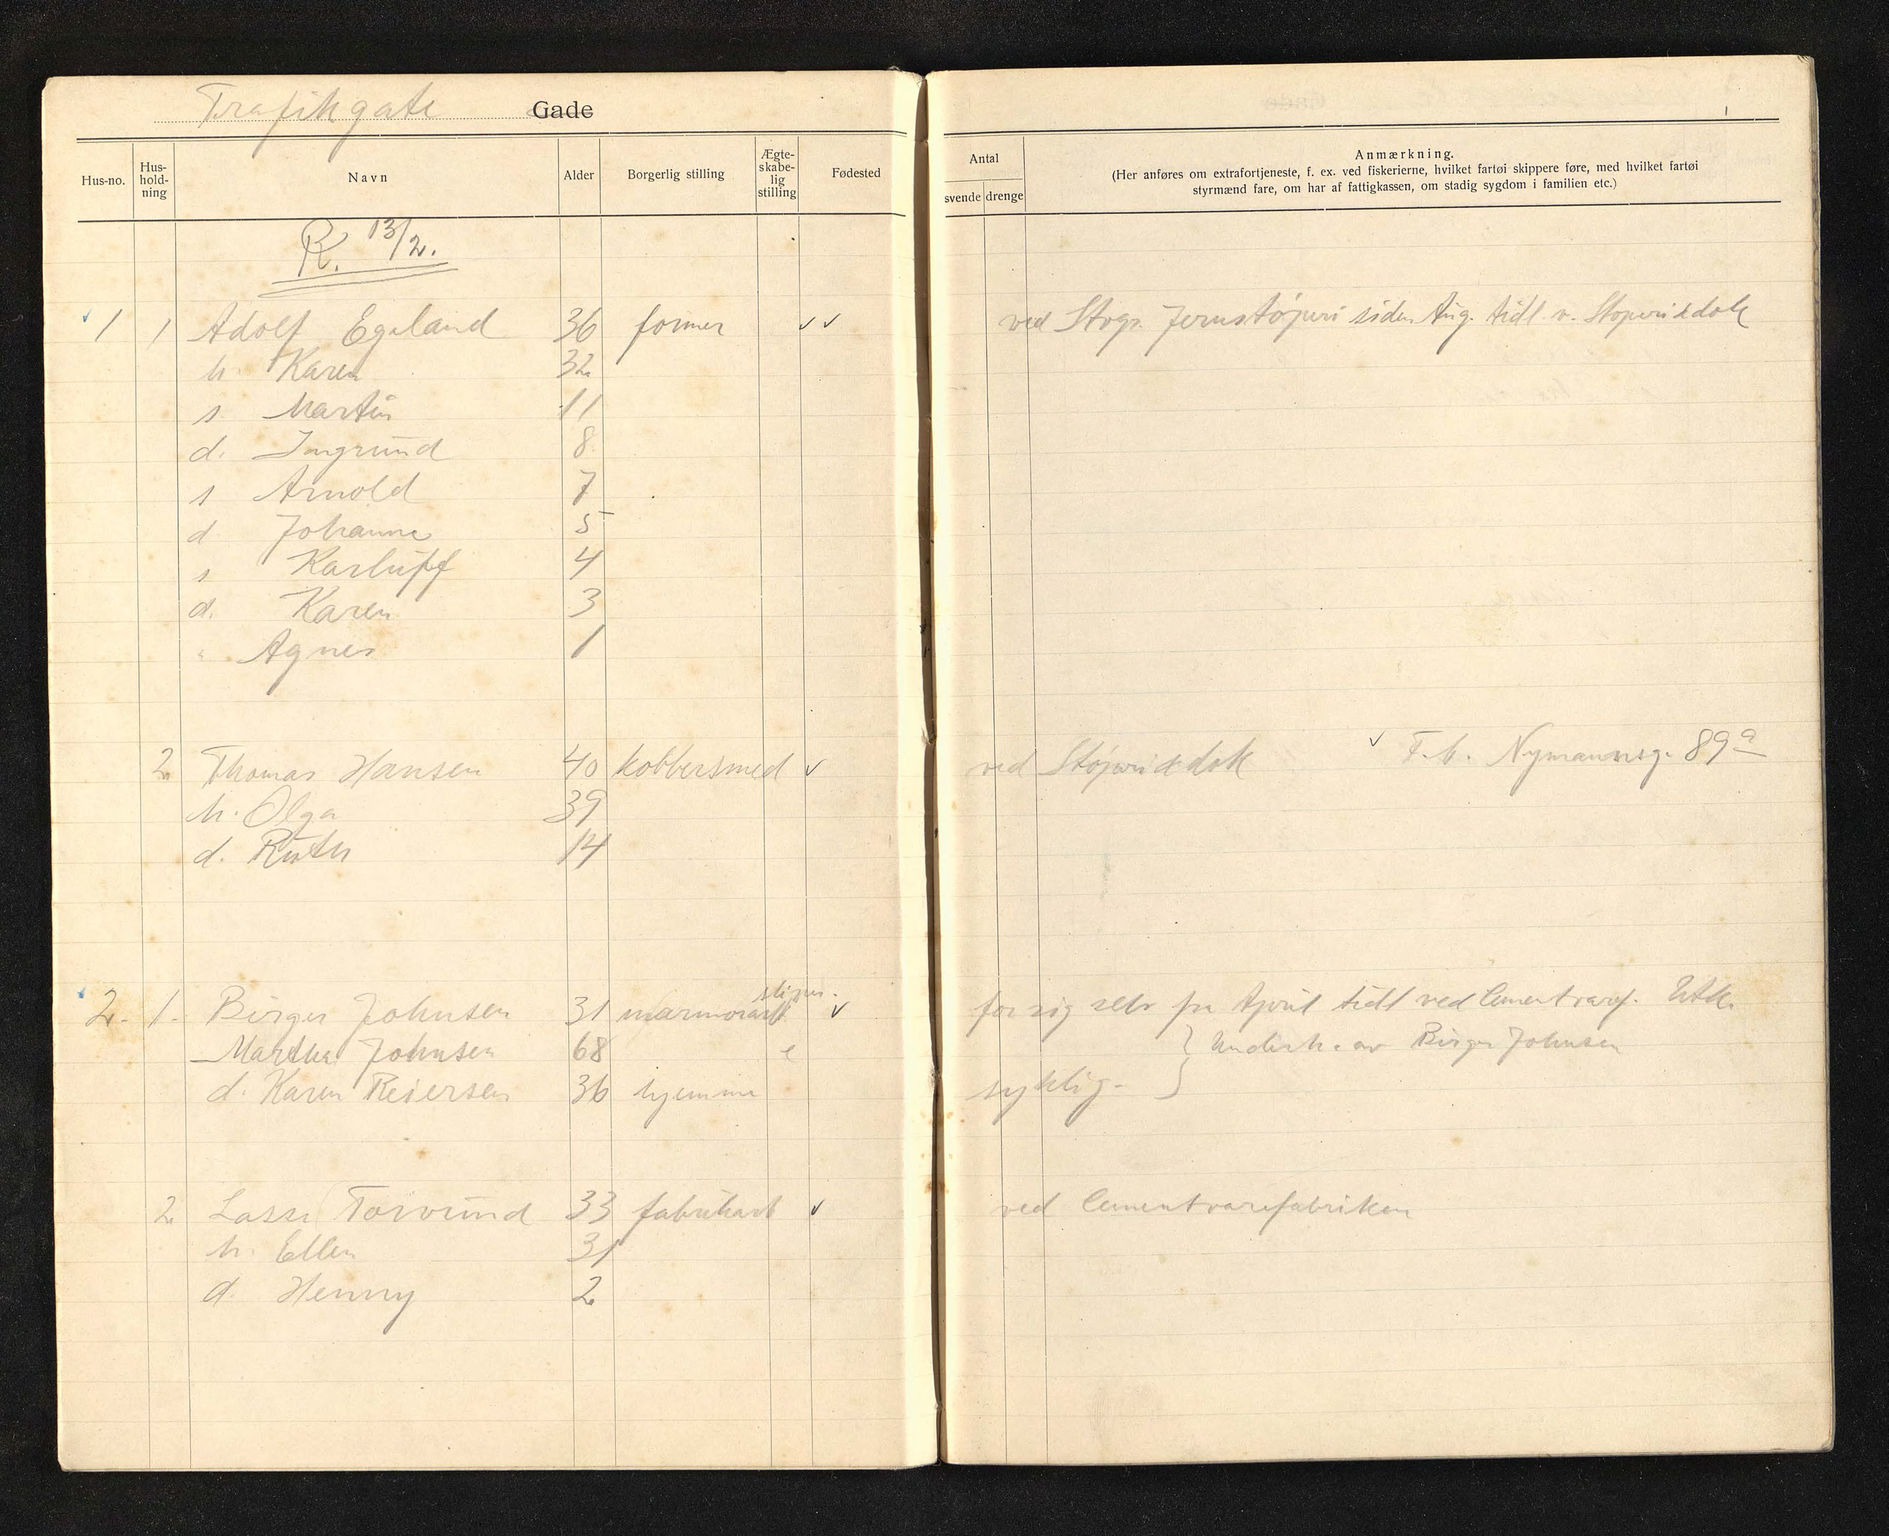 Trafikgate Gade
Hus-no. Hus-hold-ning Navn Alder Borgerlig stilling Ægte-skabe-lig stilling Fødested
Antal
svende drenge
Anmærkning.
(Her anføres om extrafortjeneste, f. ex. ved fiskerierne, hvilket fartøi skippere føre, med hvilket fartøi
styrmænd fare, om har af fattigkassen, om stadig sygdom i familien etc.)
R. 13/2.
1 1 Adolf Egeland 36 former ✓✓ ved Stvgr. Jernstøperi siden Aug. tidl. v. Støperi & dok
h. Karen 32
s Martin 11
d. Ingrund 8
s Arnold 7
d Johanne 5
s Karluff 4
d. Karen 3
" Agnes 1
2 Thomas Hansen 40 kobbersmed ✓ ved Støperi & dok ✓ F.b. Nymannsg. 89a
h. Olga 39
d. Ruth 14
2. 1. Birger Johnsen 31 marmorarb ✓ for sig selv fra April tidl ved Cementvaref.
Martha Johnsen 68 e } Underh. av Birger Johnsen
d. Karen Reiersen 36 hjemme syklig.
2 Lasse Torvund 33 fabrikarb ✓ ved Cementvarefabriken
h. Ellen 31
d. Henny 2